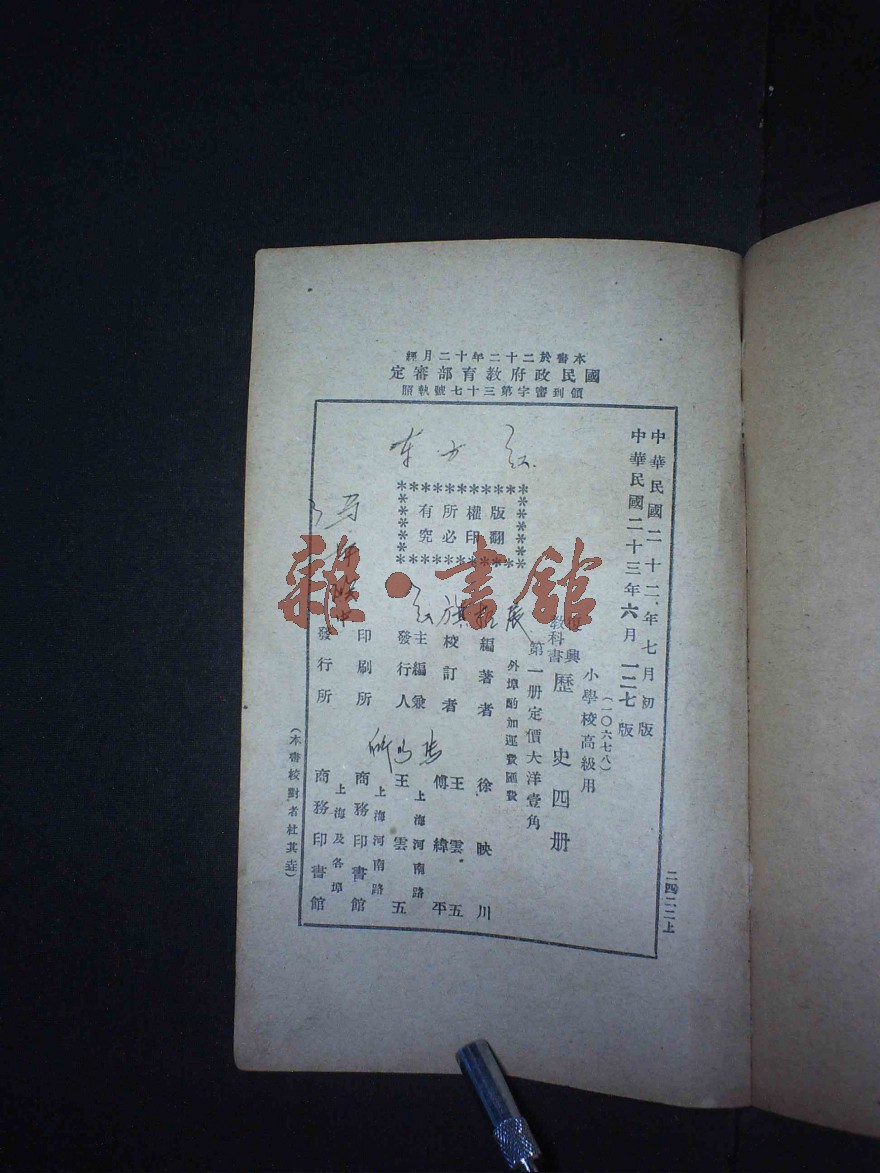 本書於二十二年十二月經
國民政府教育部審定
領到審字第三十七號執照
中華民國二十二年七月初版
中華民國二十三年六月一二七版
(一〇六七八)
小學校高級用
復興
教科書
歷史四册
第一册定價大洋壹角
外埠酌加運費匯費
版權所有
翻印必究
編著者 徐映川
校訂者 王雲五
傅緯平
主編兼
發行人 王雲五
上海河南路
印刷所 商務印書館
上海河南路
發行所 商務印書館
上海及各埠
(本書校對者杜其垚)
二四二二上
东方红
雜·書館